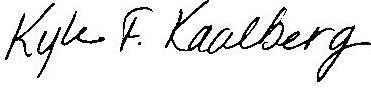 Kyle F. Kaalberg